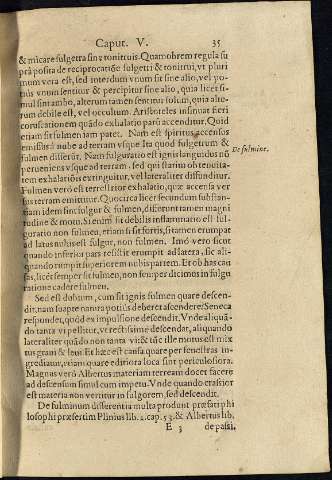 Caput. V. 35
& micare fulgetra sine tonitruis. Quamobrem regula su
prà posita de reciprocatiōe fulgetri & tonitrui, vt pluri
mum vera est, sed interdum vnum sit sine alio, vel po-
tiùs vnum sentitur & percipitur sine alio, quia licet si-
mul sint ambo, alterum tamen sentitur solùm, quia alte-
rum debile est, vel occultum. Aristoteles insinuat fieri
coruscationem quādo exhalatio parū accenditur. Quid
etiam sit fulmen iam patet. Nam est spiritus accensus
emissus à nube ad terram vsque. Ita quod fulgetrum &
fulmen differūt. Nam fulguratio est ignis languidus nō
perueniens vsque ad terram, sed qui statim ob tenuita-
tem exhalatiōis extinguitur, vel lateraliter diffunditur.
De fulmine.
Fulmen verò est terrestrior exhalatio, quæ accensa ver
sus terram emittitur. Quocirca licet secundum substan-
tiam idem sint fulgur & fulmen, differunt tamen magni
tudine & motu. Si enim sit debilis inflammatio est ful-
guratio non fulmen, etiam si sit fortis, si tamen erumpat
ad latus nubis est fulgur, non fulmen. Imò verò sicut
quando inferior pars resistit erumpit ad latera, sic ali-
quando rumpit superiorem nubis partem. Et ob has cau
sas, licèt semper sit fulmen, non semper dicimus in fulgu
ratione cadere fulmen.
Sed est dubium, cum sit ignis fulmen quare descen-
dit, nam suapte natura potiùs deberet ascendere? Seneca
respondet, quòd ex impulsione descendit. Vnde aliquā-
do tanta vi pellitur, vt rectissimè descendat, aliquando
lateraliter quādo non tanta vi: & tūc ille motus est mix
tus graui & leui. Et hæc est causa quare per fenestras in-
grediatur, etiam quare editiora loca sint periculosiora.
Magnus verò Albertus materiam terream docet facere
ad descensum simul cum impetu. Vnde quando crassior
est materia non vertitur in fulgorem, sed descendit.
De fulminum differentia multa produnt præfati phi
losophi præsertim Plinius lib. 2. cap. 53. & Albertus lib.
E 3 de passi.